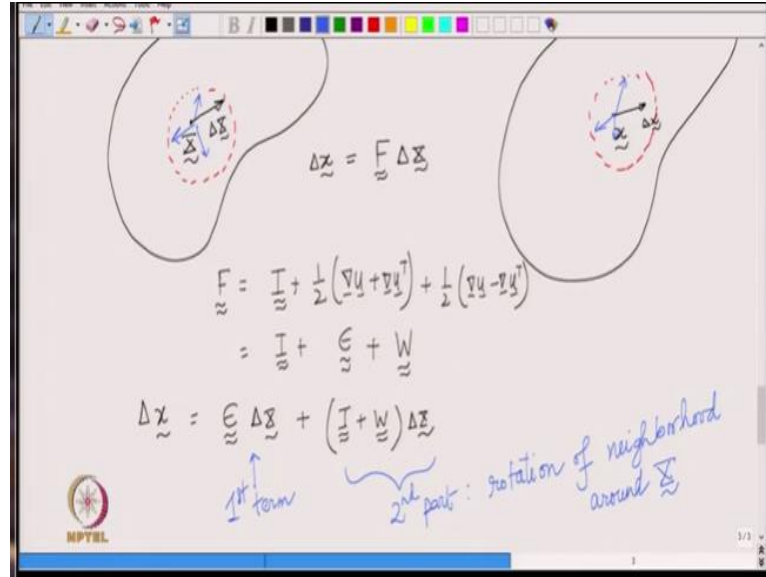 File Edit View Insert Actions Tools Help
B I
X ΔX
x Δx
Δx = F ΔX
F = I + 1/2 (∇u + ∇u^T) + 1/2 (∇u - ∇u^T)
= I + ϵ + W
Δx = ϵ ΔX + (I + W) ΔX
1st term
2nd part : rotation of neighborhood
around X
NPTEL
3/3
3